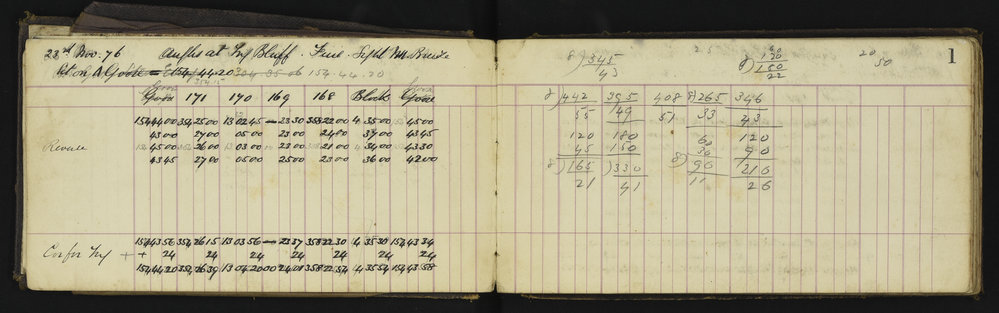 23rd Nov. 76 at Bluff. Fine. Light
Set on A Goose = 154.44.20 154.44.20
Goose 171 170 169 168 Block Goose
154 44 00 354 25 00 13 02 45 23 30 358 22 30 4 35 00 45 00
43 00 27 00 05 00 23 00 24 00 37 00 43 45
45 00 26 00 03 00 23 00 21 00 34 00 43 30
43 45 27 00 05 00 25 00 23 00 36 00 42 00
154 43 56 354 26 15 13 03 56 23 37 358 22 30 4 35 30 154 43 34
Cor for + + 24 24 24 24 24 24 24
154 44 20 354 26 39 13 04 20 24 01 358 22 54 4 35 54 154 43 58
1
8)345
43
25
60
120
8)180
22
20
50
8)442 395 408 8)265 346
55 49 51 33 43
120 180 60 120
45 150 30 90
8)165 )330 8)90 210
21 41 11 26